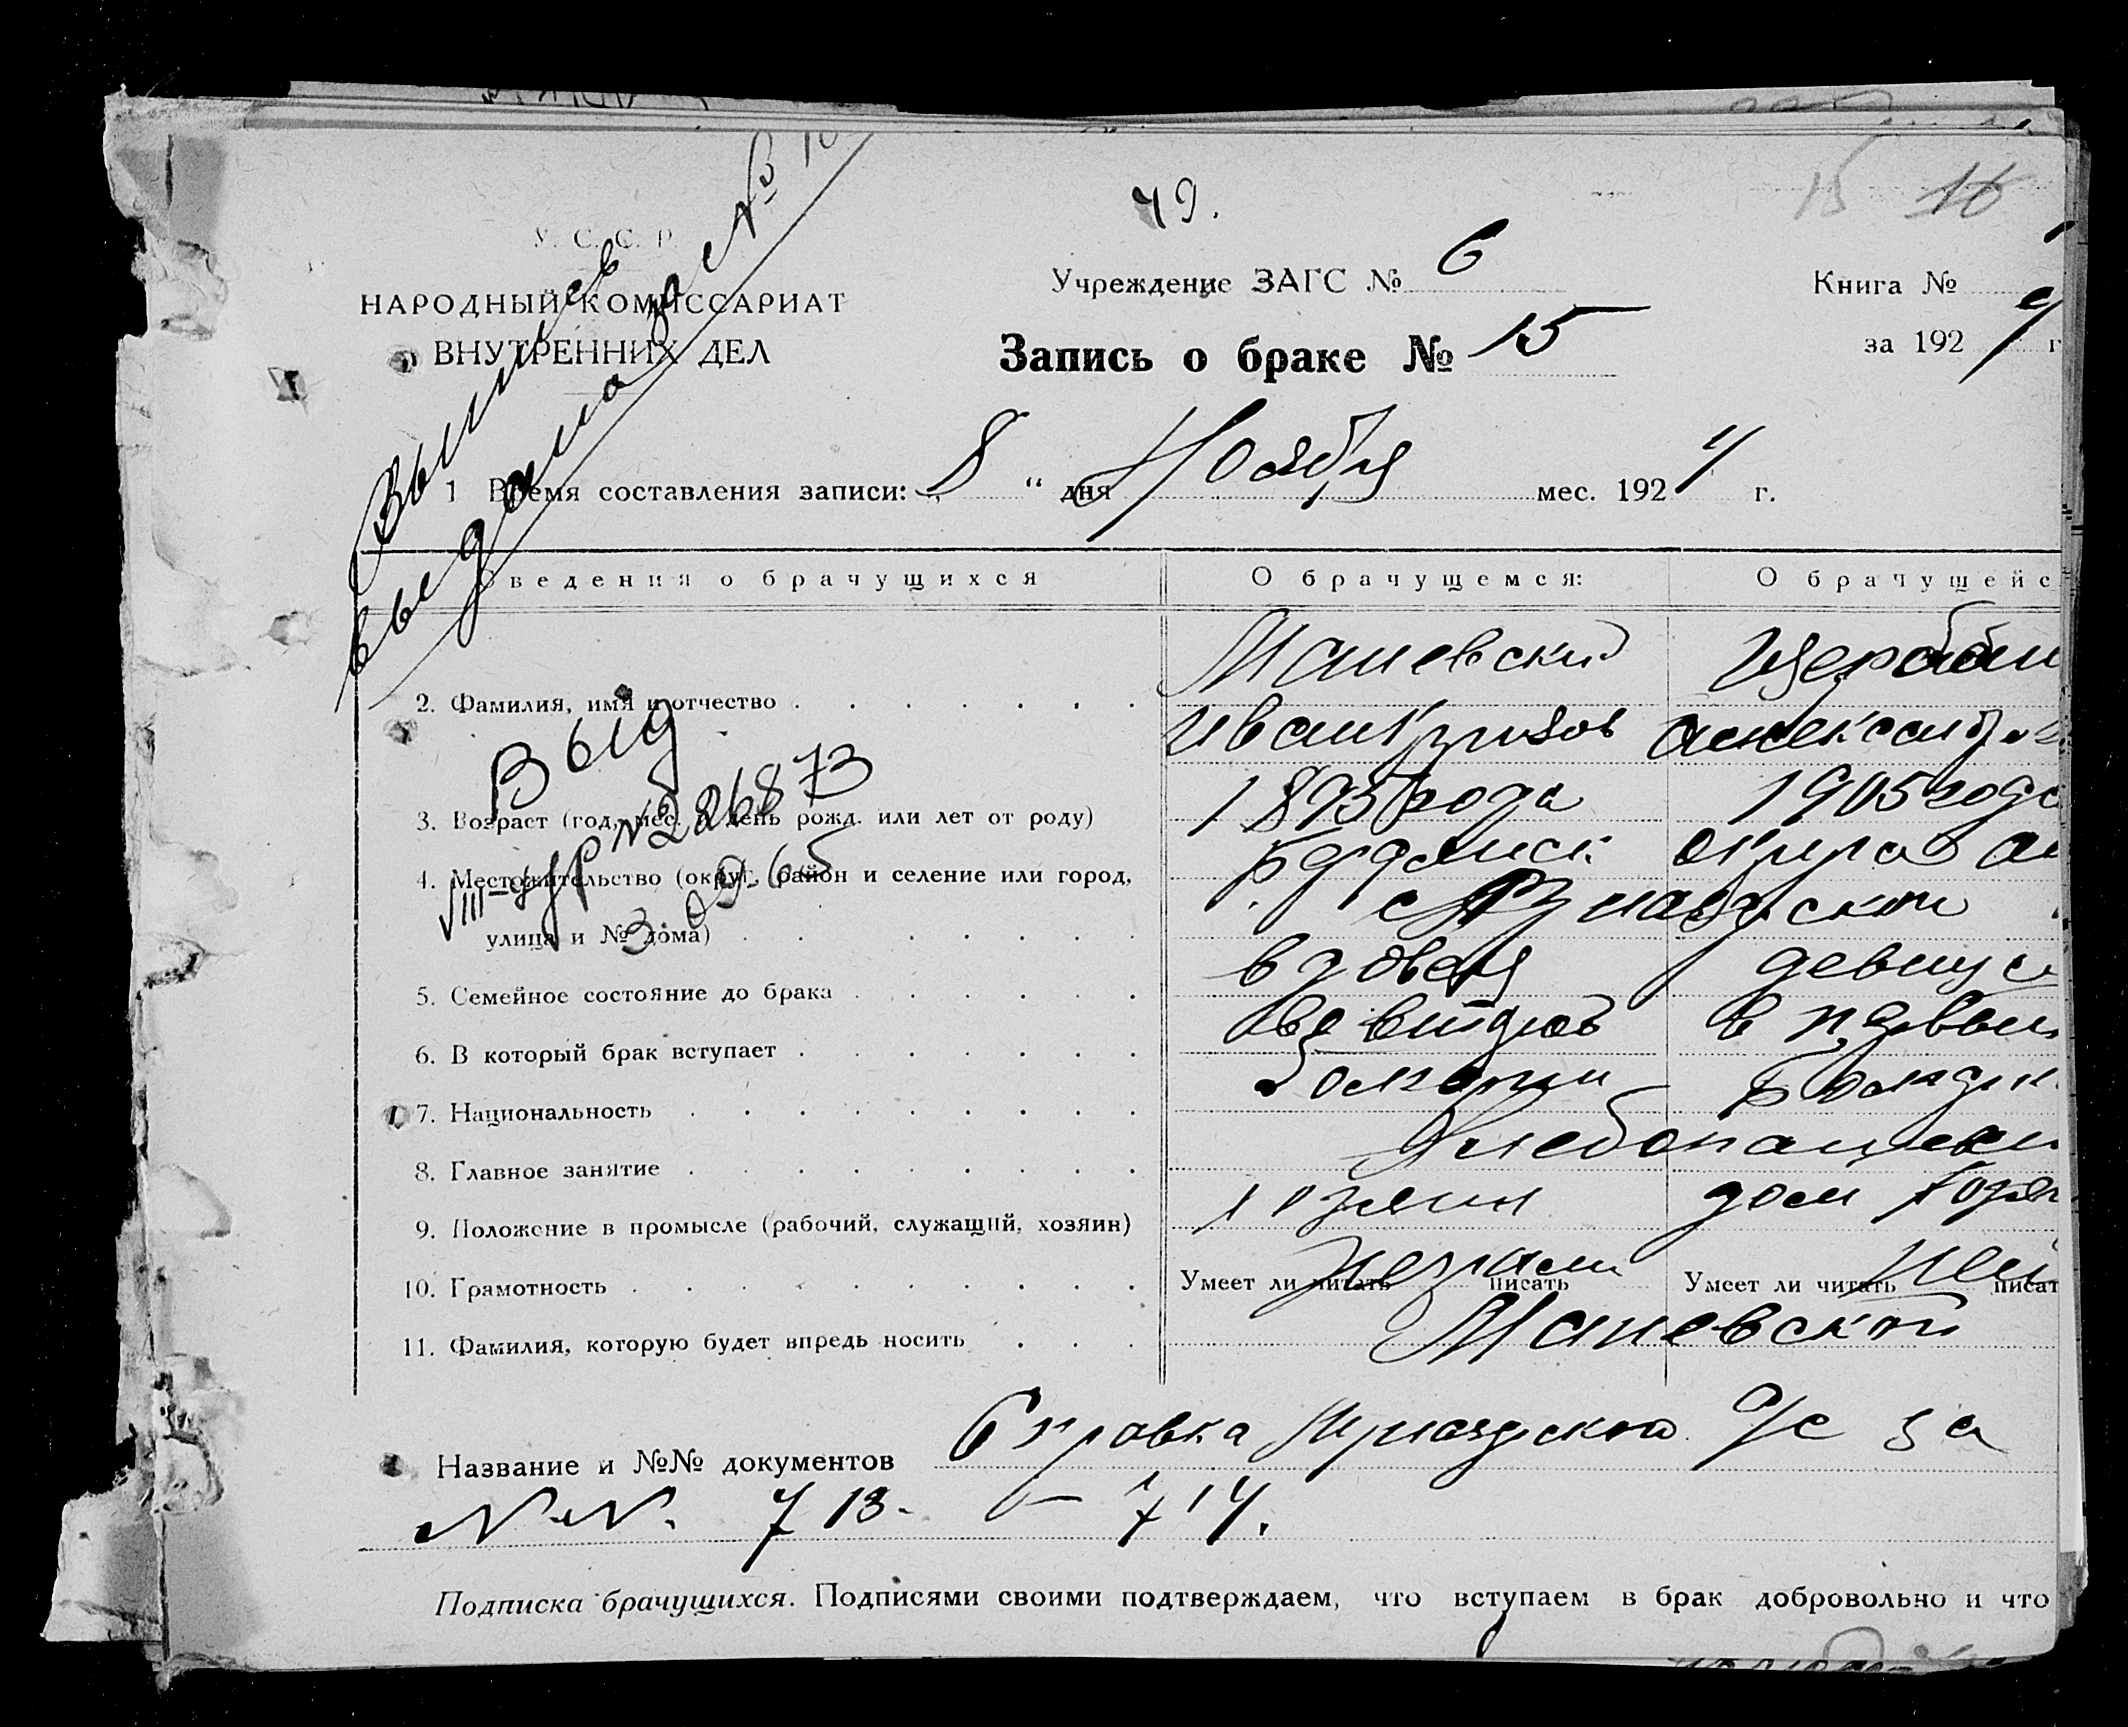 49.
15 16
У. С. С. Р.
НАРОДНЫЙ КОМИССАРИАТ
ВНУТРЕННИХ ДЕЛ
Выписка
выдана за №
Учреждение ЗАГС № 6
Книга №
Запись о браке № 15
за 1924 г
1 Время составления записи: „ 8 “ дня Ноября мес. 1924 г.
Сведения о брачущихся О брачущемся: О брачущейс
Маневский Щербан
2. Фамилия, имя и отчество
Иван Александр
Выд
3. Возраст (год, мес. и день рожд. или лет от роду) 1895 года 1905 года
№ 226873
4. Местожительство (округ, район и селение или город,
улица и № дома)
округа
5. Семейное состояние до брака вдовец девица
6. В который брак вступает во второй в первый
7. Национальность
8. Главное занятие Хлебопашец
9. Положение в промысле (рабочий, служащий, хозяин) хозяин дом хозяй
10. Грамотность Умеет ли читать писать Умеет ли читать писат
11. Фамилия, которую будет впредь носить Маневский
Название и №№ документов Справка с/с за
№№. 713 - 714.
Подписка брачущихся. Подписями своими подтверждаем, что вступаем в брак добровольно и что